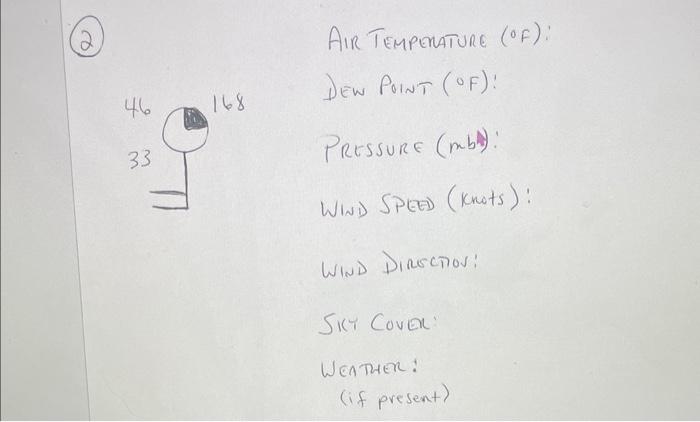 2
AIR TEMPERATURE (°F):
46 168
DEW POINT (°F):
33
PRESSURE (mb):
WIND SPEED (knots):
WIND DIRECTION:
SKY COVER:
WEATHER:
(if present)